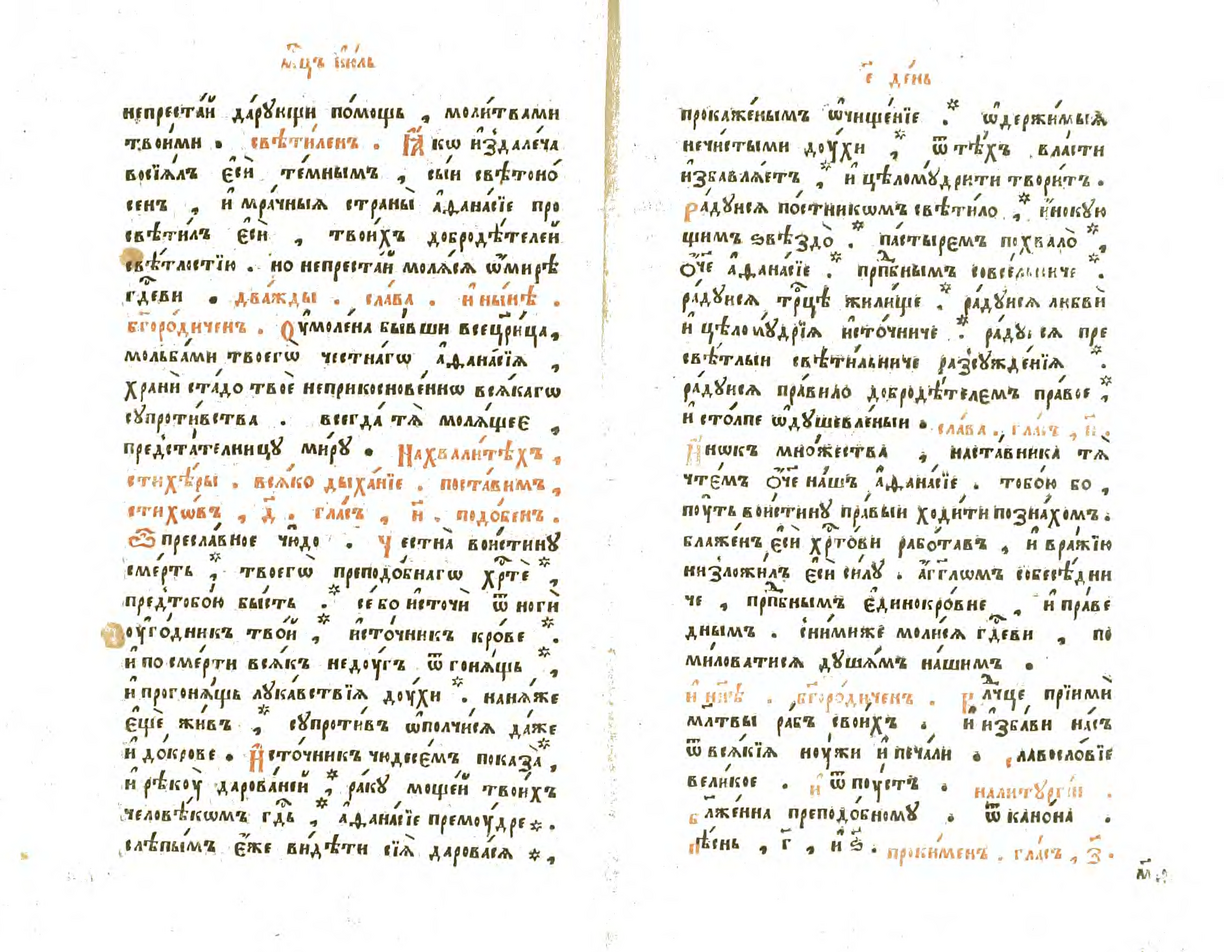 мц҃ъ і҆ю́ль
непреста́й да́рующи по́мощь , моли́твами
твои́ми . свѣти́ленъ . Ꙗ҆́кѡ и҆з̾дале́ча
восїѧ́лъ є҆сѝ те́мнымъ , сы́и свѣтоно́
сенъ , и҆ мра́чныѧ страны̀ а҆ѳана́сїе про
свѣти́лъ є҆сѝ , твои́хъ добродѣ́телей
свѣ́тлостїю . но непреста́й молѧ́сѧ ѡ҆ми́рѣ
гд҇еви . два́жды . сла́ва . и҆ ны́нѣ .
бг҃оро́диченъ . Оу҆мо́лена бы́вши всецр҃и́ца ,
мольба́ми твоегѡ̀ че́стнагѡ а҆ѳана́сїѧ ,
хранѝ ста́до твоѐ неприкоснове́ннѡ всѧ́кагѡ
супроти́вства . всегда́ тѧ̀ молѧ́щеє ,
предста́телницу ми́ру . На хвали́тѣхъ ,
стихѣ́ры . всѧ́ко дыха́нїе . поста́вимъ ,
стихѡ́въ , д҃ . гла́съ , и҃ . подо́бенъ .
Ѽ пресла́вное чю́до . Честна̀ вои́стину
сме́рть , * твоегѡ̀ преподо́бнагѡ хр҇тѐ * ,
пред̾тобо́ю бы́сть . * се́ бо и҆сточѝ ѿ ногѝ
оу҆го́дникъ тво́й , * и҆сто́чникъ кро́ве * .
и҆ по сме́рти всѧ́къ недоу́гъ ѿгонѧ́щь * ,
и҆ прогонѧ́щь лука́вствїѧ до́ухи * . нанѧ́же
є҆щѐ жи́въ , * супроти́въ ѡ҆полчи́сѧ да́же
и҆ до́крове . И҆сто́чникъ чюдесе́мъ показа̀ * ,
и҆ рѣ́коу дарова́ней , * ра́ку моще́й твои́хъ
человѣ́кѡмъ гд҇ь , * а҆ѳана́сїе премо́удре * .
слѣпы́мъ є҆́же ви́дѣти сїѧ̀ дарова́сѧ * ,
є҃ де́нь
прокаже́нымъ ѡ҆чище́нїе . * ѡ҆держи́мыѧ
нечи́стыми до́ухи , * ѿ тѣ́хъ вла́сти
и҆збавлѧ́етъ , * и҆ цѣлому́дрити твори́тъ .
Ра́дуисѧ по́стникѡмъ свѣти́ло , * и҆́нокую
щимъ ѕвѣздо̀ . * па́стыремъ похвало̀ * ,
ѻ҆́ч҃е а҆ѳана́сїе . * прп҇бнымъ совсе́льниче * .
ра́дуисѧ тр҇цѣ жили́ще . * ра́дуисѧ любвѝ
и҆ цѣлому́дрїѧ и҆сто́чниче * . ра́дуисѧ пре
свѣ́тлыи свѣти́льниче разсужде́нїѧ * .
ра́дуисѧ пра́вило добродѣ́телемъ пра́вое * ,
и҆ сто́лпе ѡ҆душевле́ныи . сла́ва . гла́съ , и҃ .
И҆́нѡкъ мно́жества , наста́вника тѧ̀
чте́мъ ѻ҆́ч҃е на́шъ а҆ѳана́сїе . тобо́ю бо ,
по́уть вои́стину пра́выи ходи́ти позна́хомъ .
блаже́нъ є҆сѝ хр҇то́ви рабо́тавъ , и҆ вра́жїю
низложи́лъ є҆сѝ си́лу . а҆́гг҃лѡмъ собесѣ́дни
че , прп҇бнымъ є҆динокро́вне , и҆ пра́ве
днымъ . сни́миже моли́сѧ гд҇еви , по
ми́ловатисѧ душа́мъ на́шимъ .
и҆ ны́нѣ . бг҃оро́диченъ . Вл҇чце прїимѝ
мл҃твы ра́бъ свои́хъ . и҆ и҆зба́ви на́съ
ѿ всѧ́кїѧ но́ужи и҆ печа́ли . славосло́вїе
вели́кое . и҆ ѿпо́устъ . на литургі́и .
бл҃же́нна преподо́бному . ѿ кано́на .
пѣ́снь , г҃ , и҆ ѕ҃ . проки́менъ . гла́съ , з҃ .